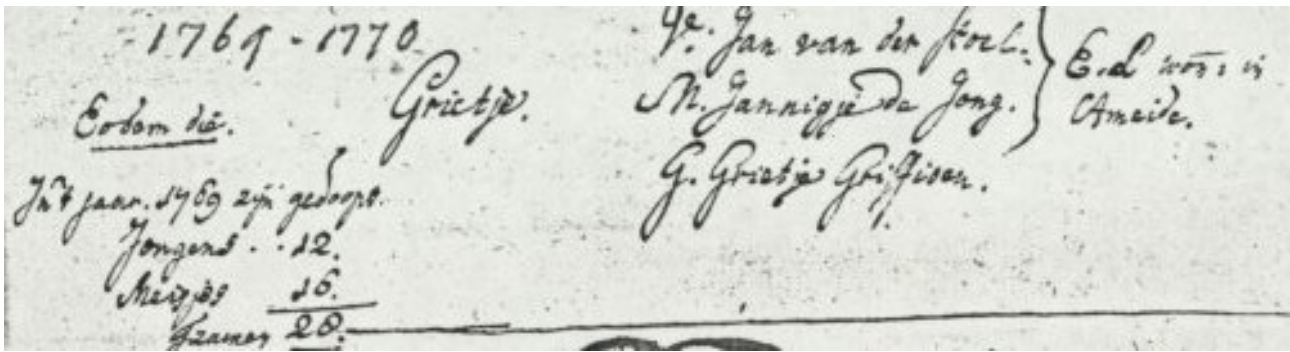 1769 - 1770.
Eodem die.
Grietje.
V. Jan van der
M. Jannigje de Jong.
G. Grietje
E.L. won: in
Ameide.
In't jaar. 1769 zijn gedoopt.
Jongens . . 12.
Meisjes 16.
Tzamen 28.